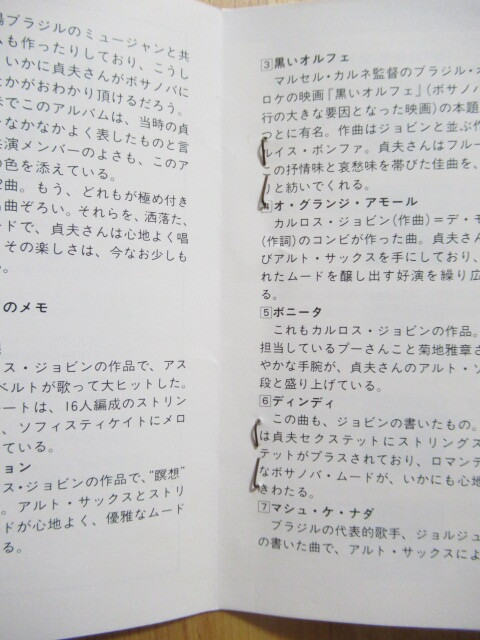 場ブラジルのミュージャンと共
ムも作ったりしており、こうし
いかに貞夫さんがボサノバに
たかがおわかり頂けるだろう。
味でこのアルバムは、当時の貞
なかなかよく表したものと言
共演メンバーのよさも、このア
の色を添えている。
2曲。もう、どれもが極め付き
名曲ぞろい。それらを、洒落た、
ードで、貞夫さんは心地よく唱
その楽しさは、今なお少しも
い。
のメモ
ス・ジョビンの作品で、アス
ベルトが歌って大ヒットした。
ートは、16人編成のストリン
、ソフィスティケイトにメロ
ている。
ョン
ス・ジョビンの作品で、“瞑想”
。アルト・サックスとストリ
ドが心地よく、優雅なムード
る。
3黒いオルフェ
マルセル・カルネ監督のブラジル・
ロケの映画『黒いオルフェ』(ボサノバ
行の大きな要因となった映画)の本題
っとに有名。作曲はジョビンと並ぶ作
ルイス・ボンファ。貞夫さんはフルー
この抒情味と哀愁味を帯びた佳曲を、
りと紡いでくれる。
4オ・グランジ・アモール
カルロス・ジョビン(作曲)=デ・モ
(作詞)のコンビが作った曲。貞夫さん
びアルト・サックスを手にしており、
れたムードを醸し出す好演を繰り広
る。
5ボニータ
これもカルロス・ジョビンの作品。
担当しているプーさんこと菊地雅章さ
やかな手腕が、貞夫さんのアルト・ソ
段と盛り上げている。
6ディンディ
この曲も、ジョビンの書いたもの。
は貞夫セクステットにストリングス
テットがプラスされており、ロマンテ
なボサノバ・ムードが、いかにも心地
きわたる。
7マシュ・ケ・ナダ
ブラジルの代表的歌手、ジョルジュ
の書いた曲で、アルト・サックスによ